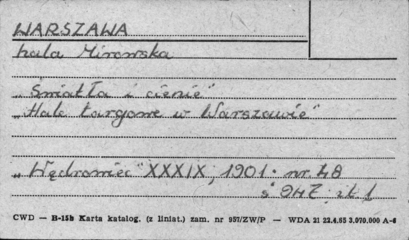 WARSZAWA
hala Mirowska
„Światła i cienie"
„Hale targowe w Warszawie"
„Wędrowiec" XXXIX, 1901. nr. 48
CWD — B-15b Karta katalog. (z liniat.) zam. nr 957/ZW/P — WDA 21 22.4.65 3.070.000 A-6